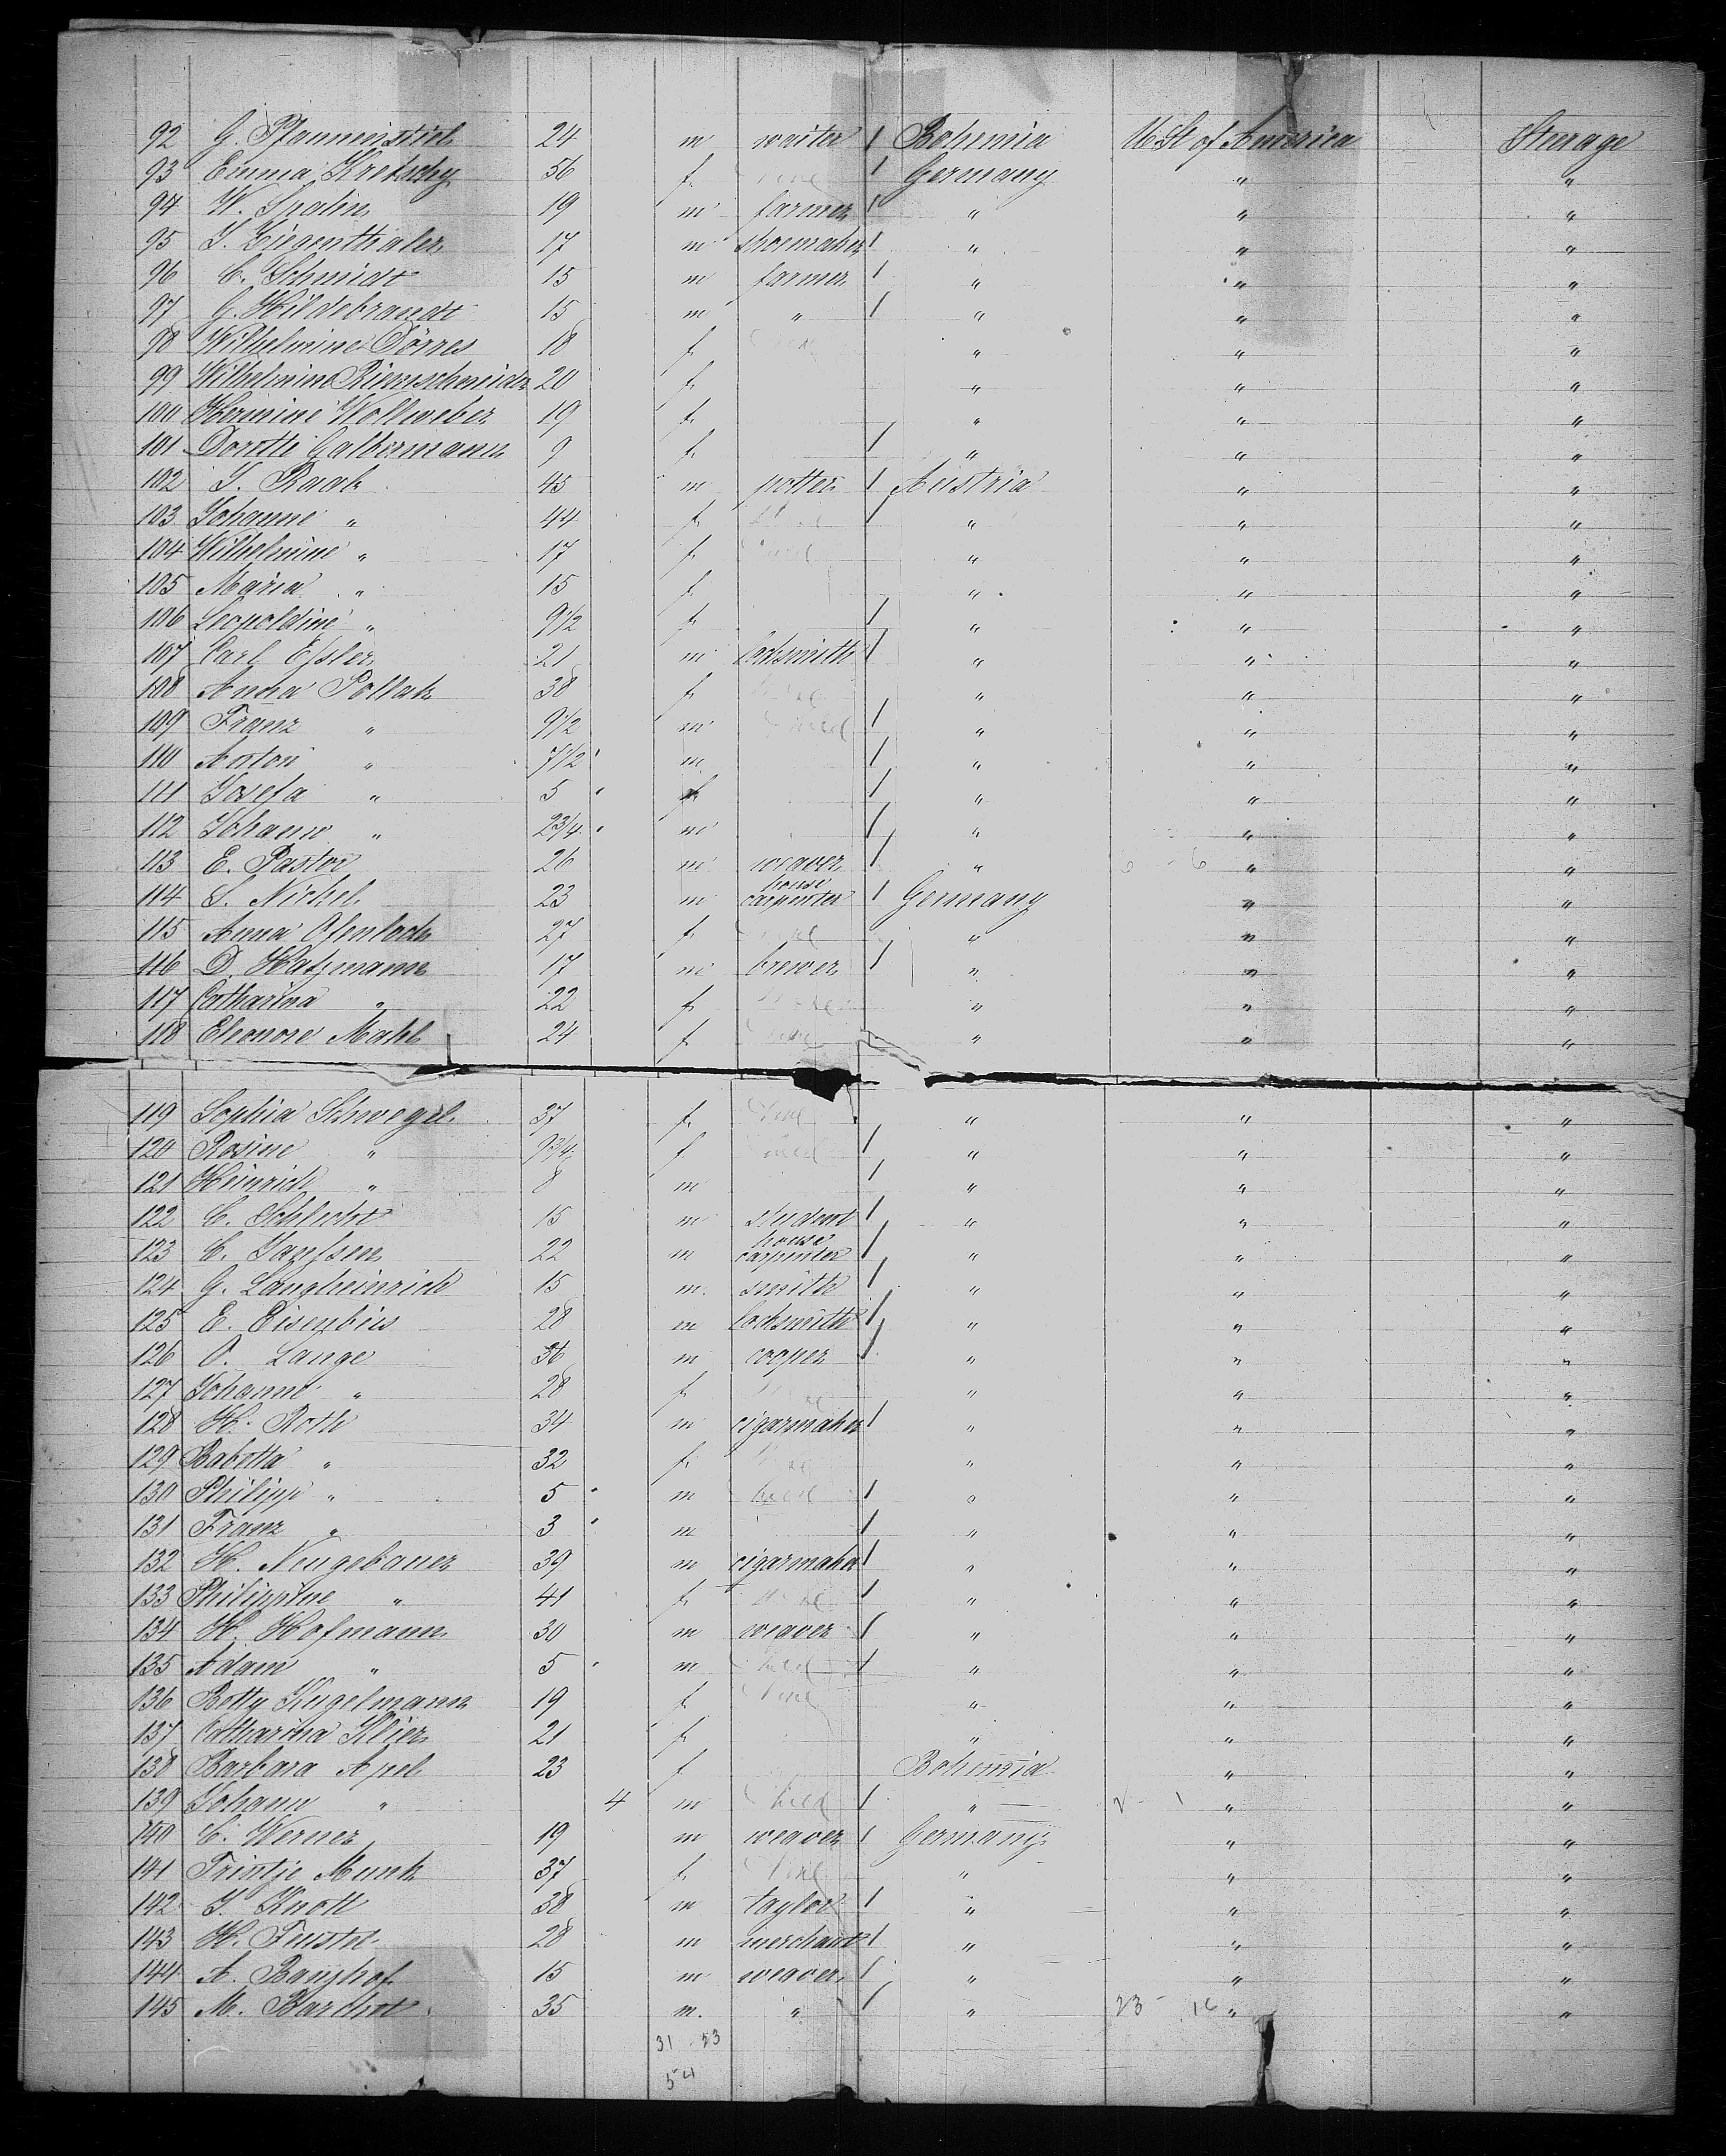 92 G. Pfannenstiel 24 m waiter / Bohemia U St of America Steerage
93 Emma Kretschy 56 f / Germany " "
94 W. Thalin 19 m farmer / " " "
95 J. Ziegenthaler 17 m shoemaker / " " "
96 C. Schmidt 15 m farmer / " " "
97 G. Hildebrandt 15 m " / " " "
98 Wilhelmine Dörres 18 f " " "
99 Wilhelmine Riemschneider 20 f " " "
100 Hermine Wollweber 19 f " " "
101 Dorothe Galbermann 9 f / " " "
102 J. Raab 45 m potter / Austria " "
103 Johanne " 44 f / " " "
104 Wilhelmine " 17 f " " "
105 Maria " 15 f " " "
106 Leopoldine " 9 1/2 f / " " "
107 Carl Essler 21 m locksmith / " " "
108 Anna Pollak 38 f " " "
109 Franz " 9 1/2 m child / " " "
110 Anton " 7 1/2 m / " " "
111 Josefa " 5 f / " " "
112 Johann " 2 3/4 m / " " "
113 E. Pastor 26 m weaver / " 6 - 6 " "
114 S. Nickel 23 m house carpenter / Germany " "
115 Anna Ofenloch 27 f " " "
116 D. Hatzmann 17 m brewer / " " "
117 Catharina " 22 f " " "
118 Eleonore Mahl 24 f " " "
119 Sophia Schwegel 37 f " " "
120 Rosine " 9 3/4 f child / " " "
121 Heinrich " 8 m / " " "
122 C. Schlicht 15 m student / " " "
123 C. Janssen 22 m house carpenter / " " "
124 G. Langheinrich 15 m. smith / " " "
125 E. Eisenbeis 28 m locksmith / " " "
126 O. Lange 36 m cooper / " " "
127 Johanne " 28 f " " "
128 H. Roth 34 m cigarmaker / " " "
129 Babetta " 32 f " " "
130 Philipp " 5 m child / " " "
131 Franz " 3 m / " " "
132 H. Neugebauer 39 m cigarmaker / " " "
133 Philippine " 41 f / " " "
134 H. Hofmann 30 m weaver / " " "
135 Adam " 5 m child / " " "
136 Betty Kugelmann 19 f " " "
137 Catharina Klier 21 f " " "
138 Barbara Apel 23 f Bohemia " "
139 Johann " 4 m child / " " "
140 C. Werner 19 m weaver / Germany " "
141 Trintje Munk 37 f " " "
142 J. Knott 38 m taylor / " " "
143 H. Feustel 28 m merchant / " " "
144 A. Banghof 15 m weaver / " " "
145 M. Bardot 35 m. " / " 23 - 16 " "
31 - 23
54